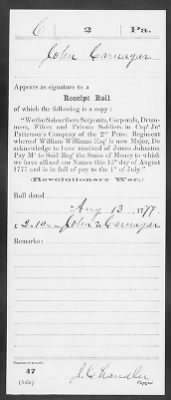 C 2 Pa.
John Carnagar
Appears as signature to a
Receipt Roll
of which the following is a copy:
"We the Subscribers Serjeants, Corporals, Drum-
mers, Fifers and Private Soldiers in Capt Jno
Patterson's Company of the 2d Penna Regiment
whereof William Williams Esqr is now Major, Do
acknowledge to have received of James Johnston
Pay Mr to Said Regt the Sums of Money to which
we have affixed our Names this 13th day of August
1777 and is in full of pay to the 1st of July."
(Revolutionary War.)
Roll dated
Aug 13, 1777.
John Carnagar
Remarks:
47
J. C. Chandler
Copyist.